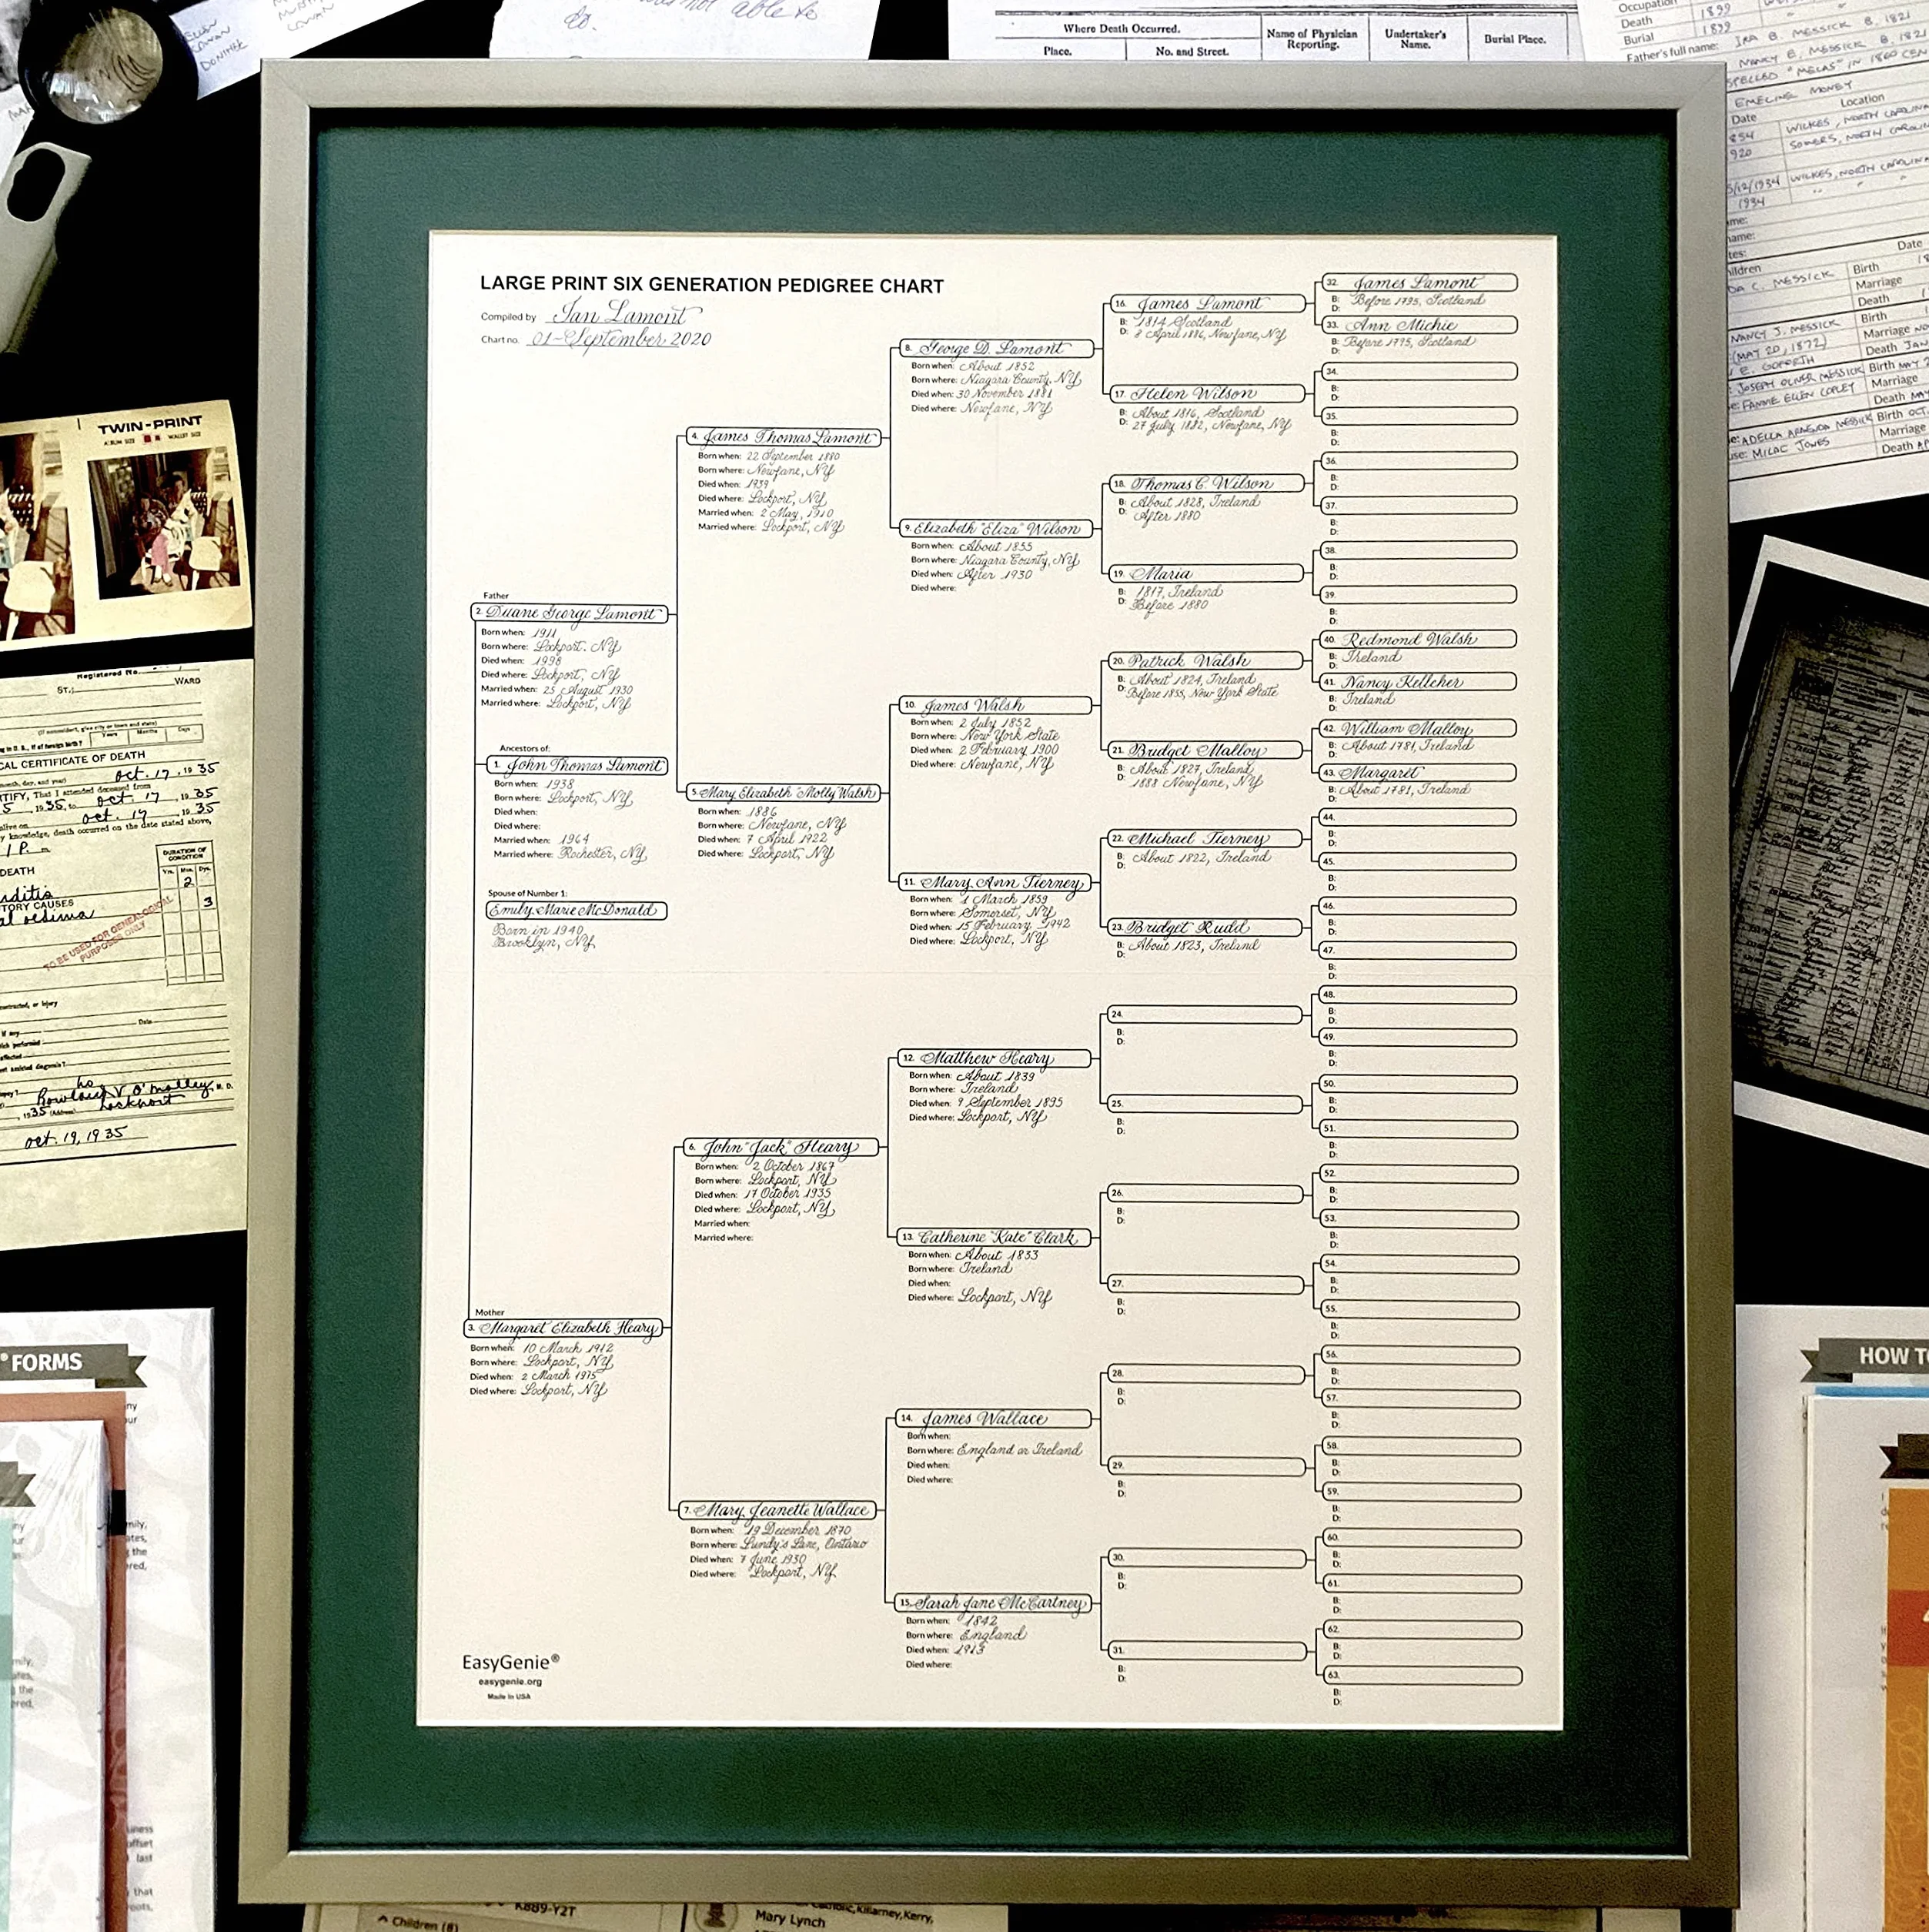 LARGE PRINT SIX GENERATION PEDIGREE CHART
Compiled by Ian Lamont
Chart no. 01-September 2020
Father
2. Duane George Lamont
Born when: 1911
Born where: Lockport. NY
Died when: 1998
Died where: Lockport, NY
Married when: 25 August 1930
Married where: Lockport, NY
Ancestors of:
1. John Thomas Lamont
Born when: 1938
Born where: Lockport, NY
Died when:
Died where:
Married when: 1964
Married where: Rochester, NY
Spouse of Number 1:
Emily Marie McDonald
Born in 1940
Brooklyn, NY
Mother
3. Margaret Elizabeth Heary
Born when: 10 March 1912
Born where: Lockport, NY
Died when: 2 March 1975
Died where: Lockport, NY
4. James Thomas Lamont
Born when: 22 September 1880
Born where: Newfane, NY
Died when: 1939
Died where: Lockport, NY
Married when: 2 May, 1910
Married where: Lockport, NY
5. Mary Elizabeth "Molly" Walsh
Born when: 1886
Born where: Newfane, NY
Died when: 7 April 1922
Died where: Lockport, NY
6. John "Jack" Heary
Born when: 2 October 1867
Born where: Lockport, NY
Died when: 17 October 1935
Died where: Lockport, NY
Married when:
Married where:
7. Mary Jeanette Wallace
Born when: 19 December 1870
Born where: Lundy's Lane, Ontario
Died when: 7 June 1930
Died where: Lockport, NY
8. George D. Lamont
Born when: About 1852
Born where: Niagara County, NY
Died when: 30 November 1881
Died where: Newfane, NY
9. Elizabeth "Eliza" Wilson
Born when: About 1855
Born where: Niagara County, NY
Died when: After 1930
Died where:
10. James Walsh
Born when: 2 July 1852
Born where: New York State
Died when: 2 February 1900
Died where: Newfane, NY
11. Mary Ann Tierney
Born when: 1 March 1859
Born where: Somerset, NY
Died when: 15 February 1942
Died where: Lockport, NY
12. Matthew Heary
Born when: About 1839
Born where: Ireland
Died when: 9 September 1895
Died where: Lockport, NY
13. Catherine "Kate" Clark
Born when: About 1833
Born where: Ireland
Died when:
Died where: Lockport, NY
14. James Wallace
Born when:
Born where: England or Ireland
Died when:
Died where:
15. Sarah Jane McCartney
Born when: 1842
Born where: England
Died when: 1913
Died where:
16. James Lamont
B: 1814 Scotland
D: 8 April 1886, Newfane, NY
17. Helen Wilson
B: About 1816, Scotland
D: 27 July 1882, Newfane, NY
18. Thomas C. Wilson
B: About 1828, Ireland
D: After 1880
19. Maria
B: 1817, Ireland
D: Before 1880
20. Patrick Walsh
B: About 1824, Ireland
D: Before 1855, New York State
21. Bridget Malloy
B: About 1827, Ireland
D: 1888 Newfane, NY
22. Michael Tierney
B: About 1822, Ireland
D:
23. Bridget Rudd
B: About 1823, Ireland
D:
24.
B:
D:
25.
B:
D:
26.
B:
D:
27.
B:
D:
28.
B:
D:
29.
B:
D:
30.
B:
D:
31.
B:
D:
32. James Lamont
B: Before 1795, Scotland
D:
33. Ann Michie
B: Before 1795, Scotland
D:
34.
B:
D:
35.
B:
D:
36.
B:
D:
37.
B:
D:
38.
B:
D:
39.
B:
D:
40. Redmond Walsh
B: Ireland
D:
41. Nancy Kelleher
B: Ireland
D:
42. William Malloy
B: About 1781, Ireland
D:
43. Margaret
B: About 1781, Ireland
D:
44.
B:
D:
45.
B:
D:
46.
B:
D:
47.
B:
D:
48.
B:
D:
49.
B:
D:
50.
B:
D:
51.
B:
D:
52.
B:
D:
53.
B:
D:
54.
B:
D:
55.
B:
D:
56.
B:
D:
57.
B:
D:
58.
B:
D:
59.
B:
D:
60.
B:
D:
61.
B:
D:
62.
B:
D:
63.
B:
D:
EasyGenie®
easygenie.org
Made in USA
not able to
do.
Where Death Occurred.
Place.
No. and Street.
Name of Physician Reporting.
Undertaker's Name.
Burial Place.
Occupation
Death 1899
Burial 1899
Father's full name: IRA B. MESSICK B. 1821
NANCY E. MESSICK B. 1821
SPELLED "MELAS" IN 1860 CEN
EMELINE MONEY
Date Location
854 WILKES, NORTH CAROLINA
920 SOMERS, NORTH CAROLIN
5/12/1934 WILKES, NORTH CAROLINA
1934
Date
DA C. MESSICK Birth
Marriage
Death
NANCY J. MESSICK Birth
(MAY 20, 1872) Marriage
E. GOFORTH Death JAN
JOSEPH OLIVER MESSICK Birth MAY
FANNIE ELLEN COPLEY Marriage
Death MAY
ADELLA ARMINDA MESSICK Birth OCT.
MILAC JONES Marriage
Death
TWIN-PRINT
ALBUM SIZE WALLET SIZE
Registered No.
ST.; WARD
CAL CERTIFICATE OF DEATH
oct. 17, 1935
TIFY, That I attended deceased from
1935, to oct. 17, 1935
alive on oct. 17, 1935
knowledge, death occurred on the date stated above,
DURATION OF CONDITION
Yrs. Mos. Dys.
2
DEATH
TORY CAUSES
3
TO BE USED FOR GENEALOGICAL PURPOSES ONLY
Date
Rowland V. O'Malley M. D.
1935 (Address) Lockport
oct. 19, 1935
® FORMS
HOW TO
K889-Y2T
Children (8)
Catholic, Killarney, Kerry,
Mary Lynch